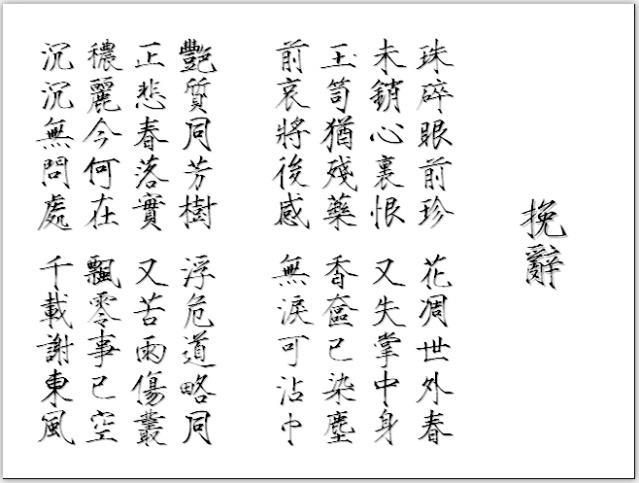 挽辭
珠碎眼前珍 花凋世外春
未銷心裏恨 又失掌中身
玉笥猶殘藥 香奩已染塵
前哀將後感 無淚可沾巾
豔質同芳樹 浮危道略同
正悲春落實 又苦雨傷叢
穠麗今何在 飄零事已空
沉沉無問處 千載謝東風